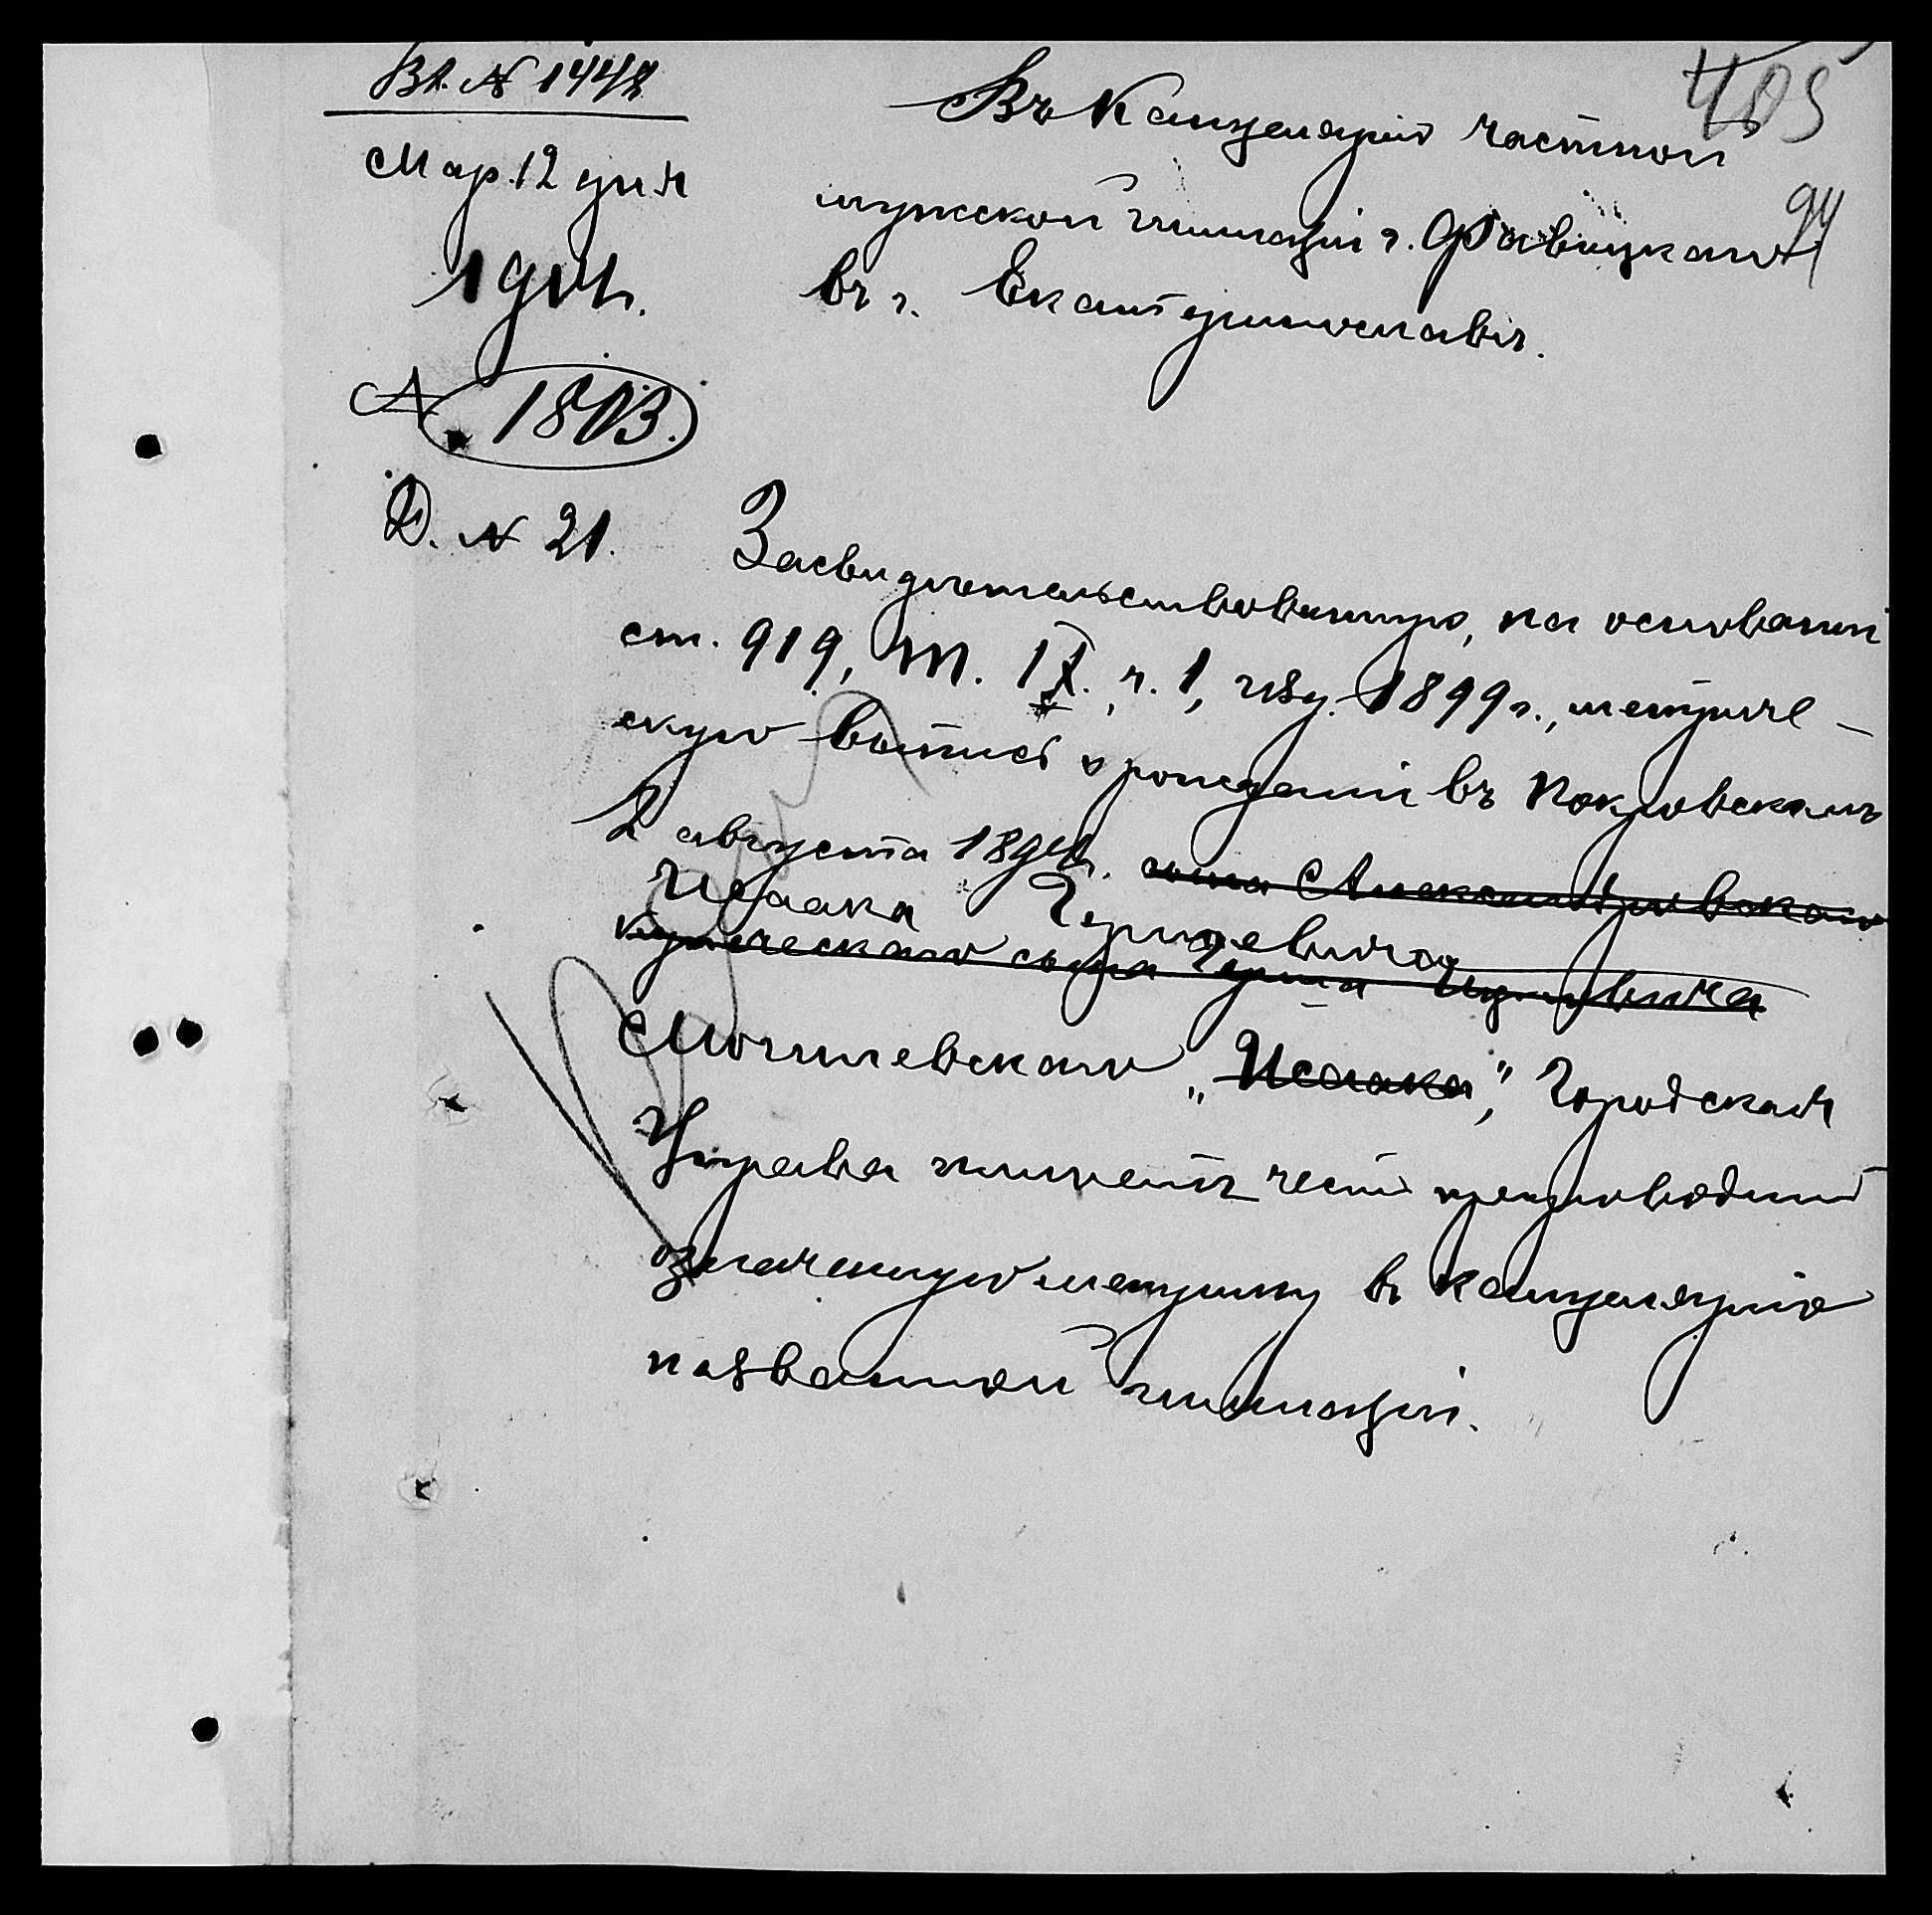 Вх. № 1442
Мар. 12 дня
1911г.
№ 1803.
Д. № 21.
405
94
Въ Канцелярію частной
мужской гимназіи г. Фовицкаго
въ г. Екатеринославѣ.
Засвидѣтельствованную, на основаніи
ст. 919, т. IX. ч. 1, изд. 1899 г., метриче-
скую выпись о рожденіи въ Покровскомъ
2 августа 189 г. сына Александровскаго
Исаака Гершевича
купеческаго сына Герша
Могилевскаго „Исаака", Городская
Управа имѣетъ честь препроводить
означенную метрику въ канцелярію
названной гимназіи.